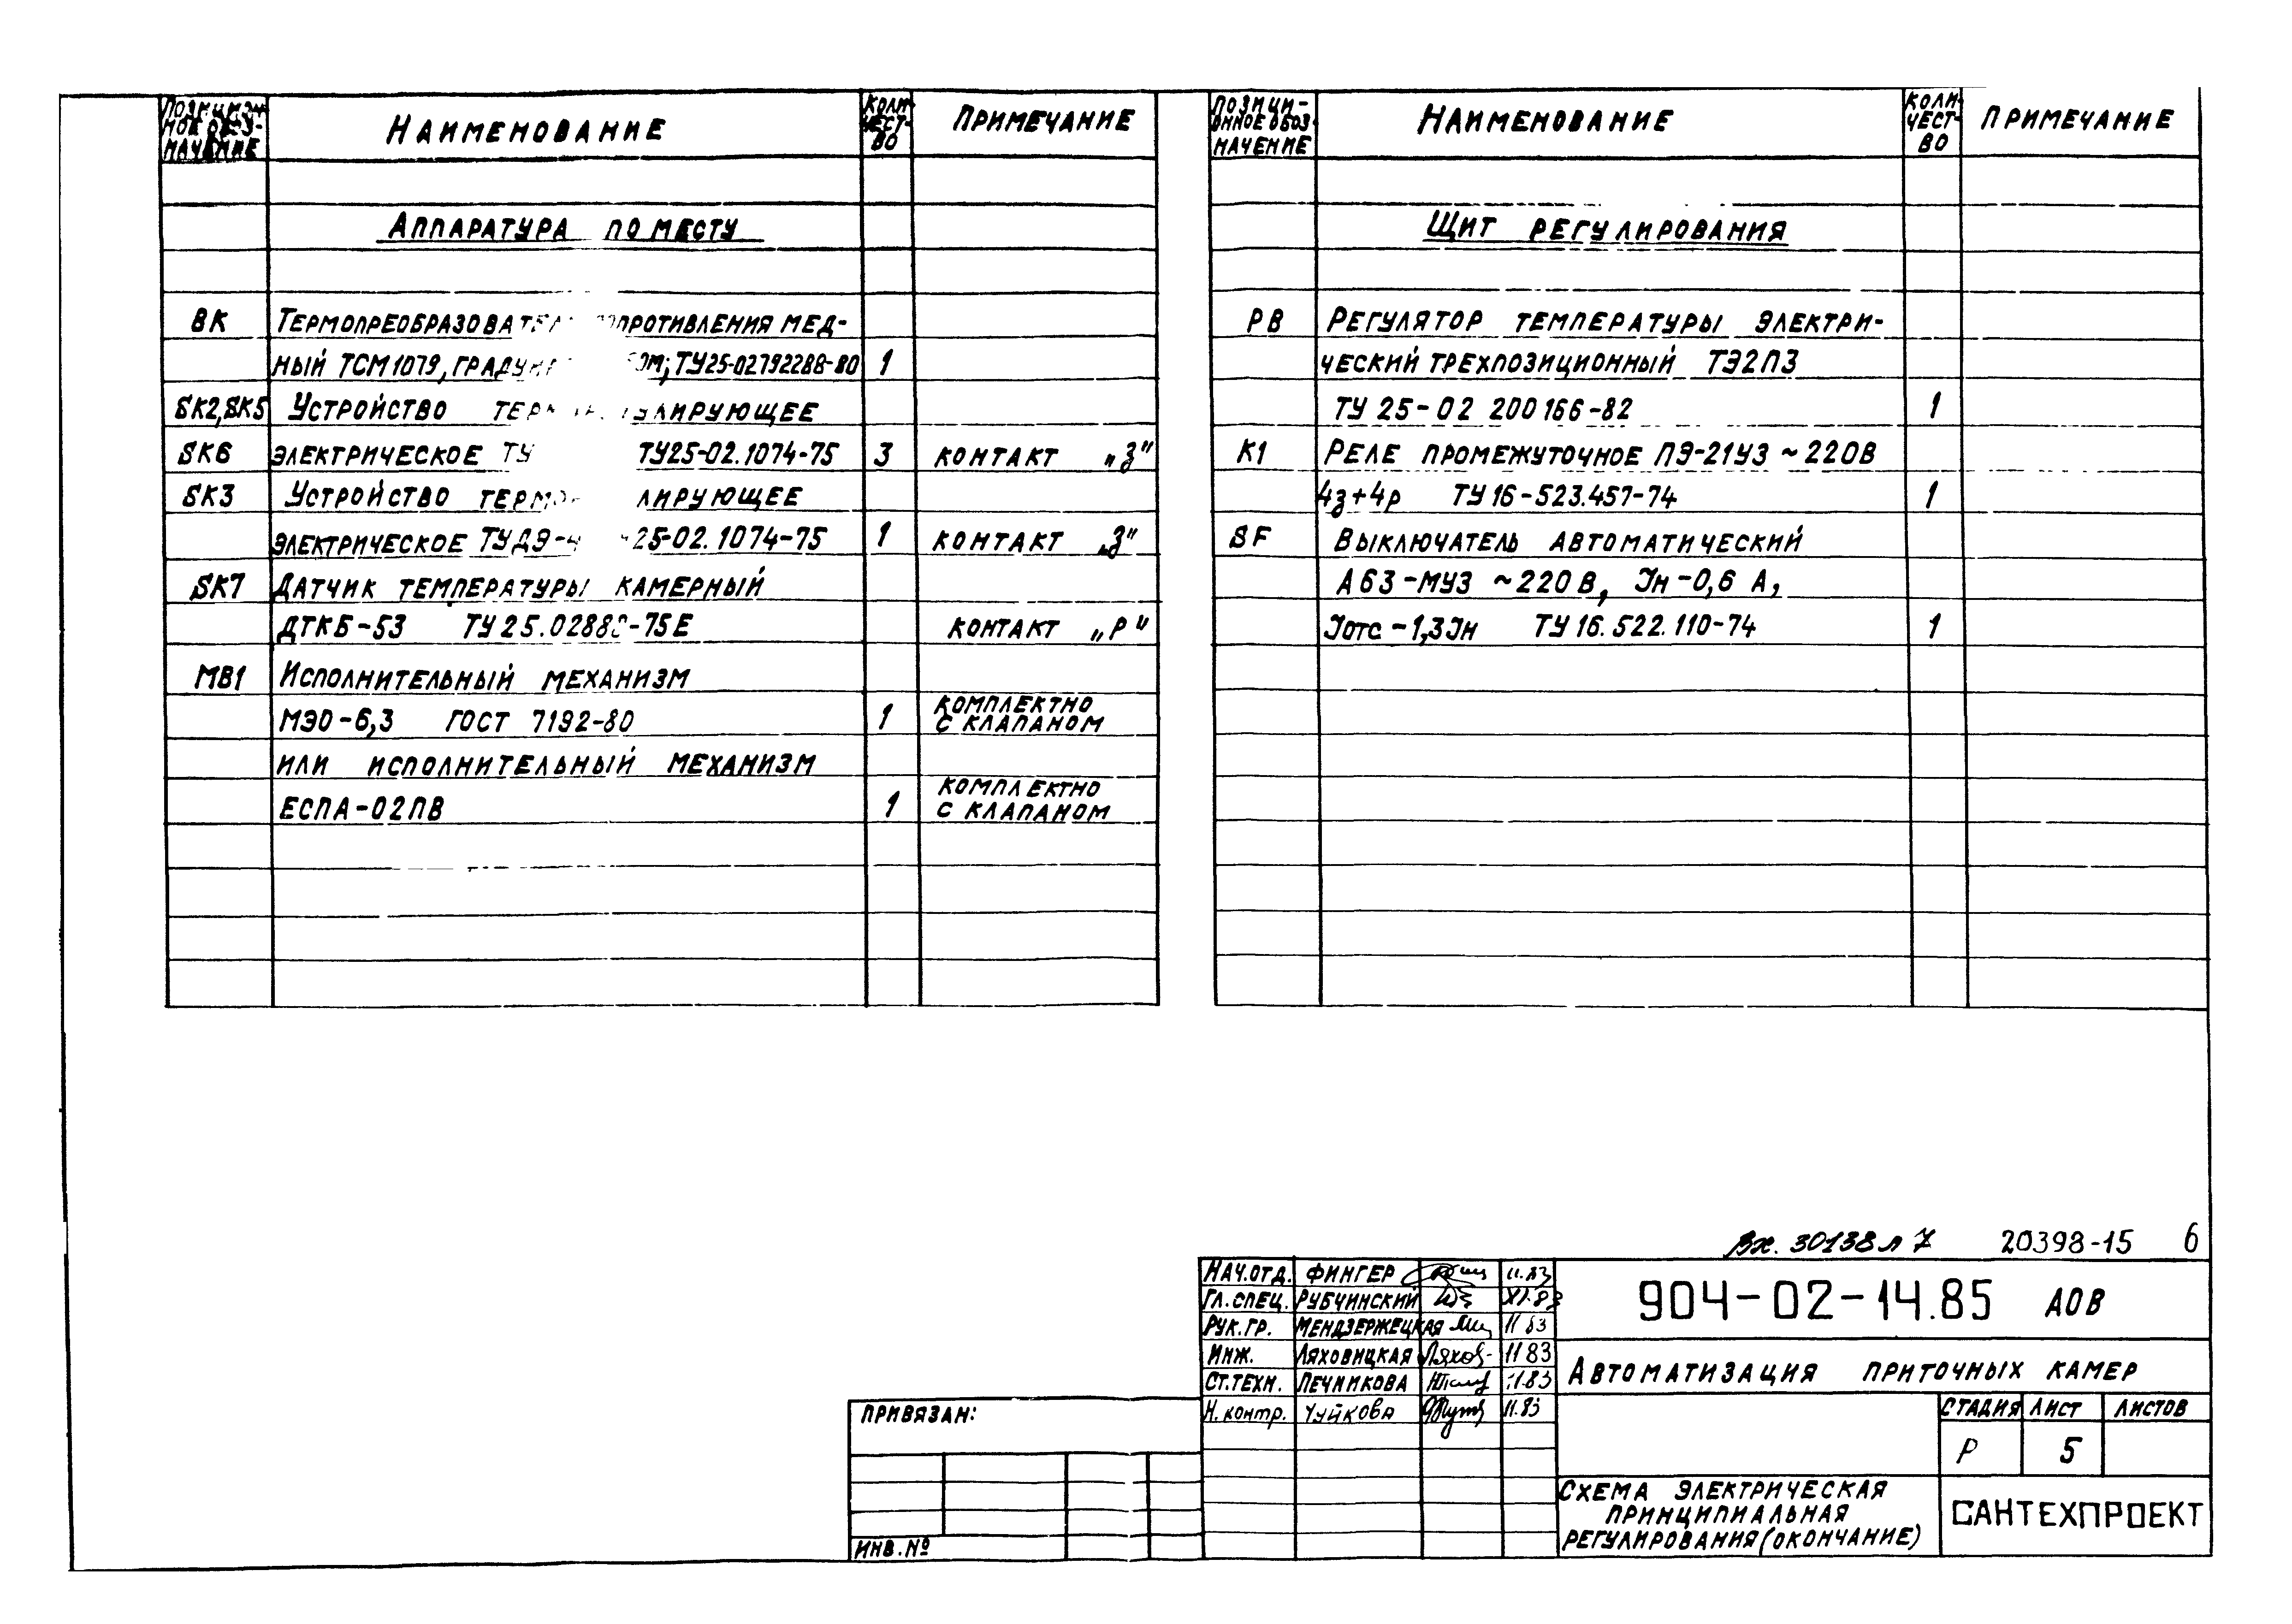 ПОЗИЦИОН-
НОЕ ОБОЗ-
НАЧЕНИЕ
НАИМЕНОВАНИЕ
КОЛИ-
ЧЕСТ-
ВО
ПРИМЕЧАНИЕ
АППАРАТУРА ПО МЕСТУ
ВК ТЕРМОПРЕОБРАЗОВАТЕЛ ОПРОТИВЛЕНИЯ МЕД-
НЫЙ ТСМ1079, ГРАДУИ ОМ; ТУ25-02792288-80 1
SK2,SK5 УСТРОЙСТВО ТЕРМ УЛИРУЮЩЕЕ
SK6 ЭЛЕКТРИЧЕСКОЕ ТУ ТУ25-02.1074-75 3 КОНТАКТ „З"
SK3 УСТРОЙСТВО ТЕРМО ЛИРУЮЩЕЕ
ЭЛЕКТРИЧЕСКОЕ ТУДЭ-4 25-02.1074-75 1 КОНТАКТ „З"
SK7 ДАТЧИК ТЕМПЕРАТУРЫ КАМЕРНЫЙ
ДТКБ-53 ТУ25.02888-75Е КОНТАКТ „Р"
МВ1 ИСПОЛНИТЕЛЬНЫЙ МЕХАНИЗМ
МЭО-6,3 ГОСТ 7192-80 1 КОМПЛЕКТНО
С КЛАПАНОМ
ИЛИ ИСПОЛНИТЕЛЬНЫЙ МЕХАНИЗМ
ЕСПА-02ПВ 1 КОМПЛЕКТНО
С КЛАПАНОМ
ПОЗИЦИ-
ОННОЕ ОБОЗ-
НАЧЕНИЕ
НАИМЕНОВАНИЕ
КОЛИ-
ЧЕСТ-
ВО
ПРИМЕЧАНИЕ
ЩИТ РЕГУЛИРОВАНИЯ
РВ РЕГУЛЯТОР ТЕМПЕРАТУРЫ ЭЛЕКТРИ-
ЧЕСКИЙ ТРЕХПОЗИЦИОННЫЙ ТЭ2П3
ТУ 25-02 200166-82 1
К1 РЕЛЕ ПРОМЕЖУТОЧНОЕ ПЭ-21У3 ~220В
4з+4р ТУ16-523.457-74 1
SF ВЫКЛЮЧАТЕЛЬ АВТОМАТИЧЕСКИЙ
А63-МУ3 ~220В, Iн-0,6 А,
Iотс-1,3Iн ТУ16.522.110-74 1
Вх. 30138 л 7 20398-15 6
НАЧ.ОТД. ФИНГЕР 11.83
ГЛ.СПЕЦ. РУБЧИНСКИЙ XI.83
РУК.ГР. МЕНДЗЕРЖЕЦКАЯ 11 83
ИНЖ. ЛЯХОВИЦКАЯ Ляхов- 11 83
СТ.ТЕХН. ПЕЧНИКОВА 11.83
Н.КОНТР. ЧУЙКОВА 11.83
904-02-14.85 АОВ
АВТОМАТИЗАЦИЯ ПРИТОЧНЫХ КАМЕР
СТАДИЯ ЛИСТ ЛИСТОВ
Р 5
СХЕМА ЭЛЕКТРИЧЕСКАЯ
ПРИНЦИПИАЛЬНАЯ
РЕГУЛИРОВАНИЯ (ОКОНЧАНИЕ)
САНТЕХПРОЕКТ
ПРИВЯЗАН:
ИНВ.№